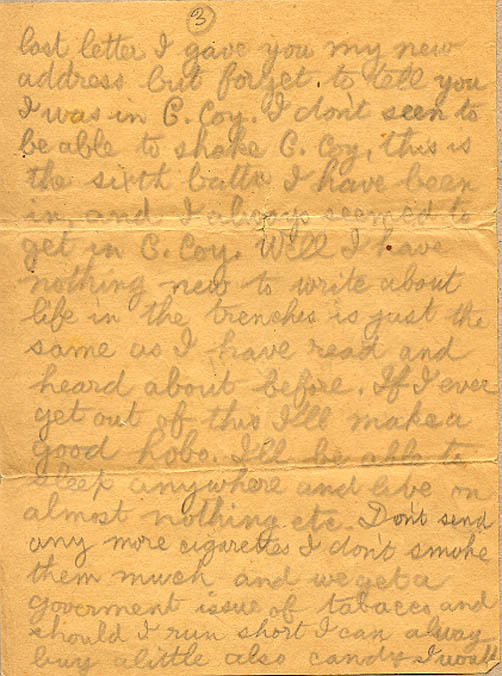 3
last letter I gave you my new
address but forget to tell you
I was in C. Coy. I don't seen to
be able to shake C. Coy, this is
the sixth battn I have been
in, and I always seemed to
get in C. Coy. Well I have
nothing new to write about
life in the trenches is just the
same as I have read and
heard about before. If I ever
get out of this I'll make a
good hobo. I'll be able to
sleep anywhere and live on
almost nothing etc. Don't send
any more cigarettes I don't smoke
them much and we get a
goverment issue of tabacco and
should I run short I can alway
buy a little also candy I